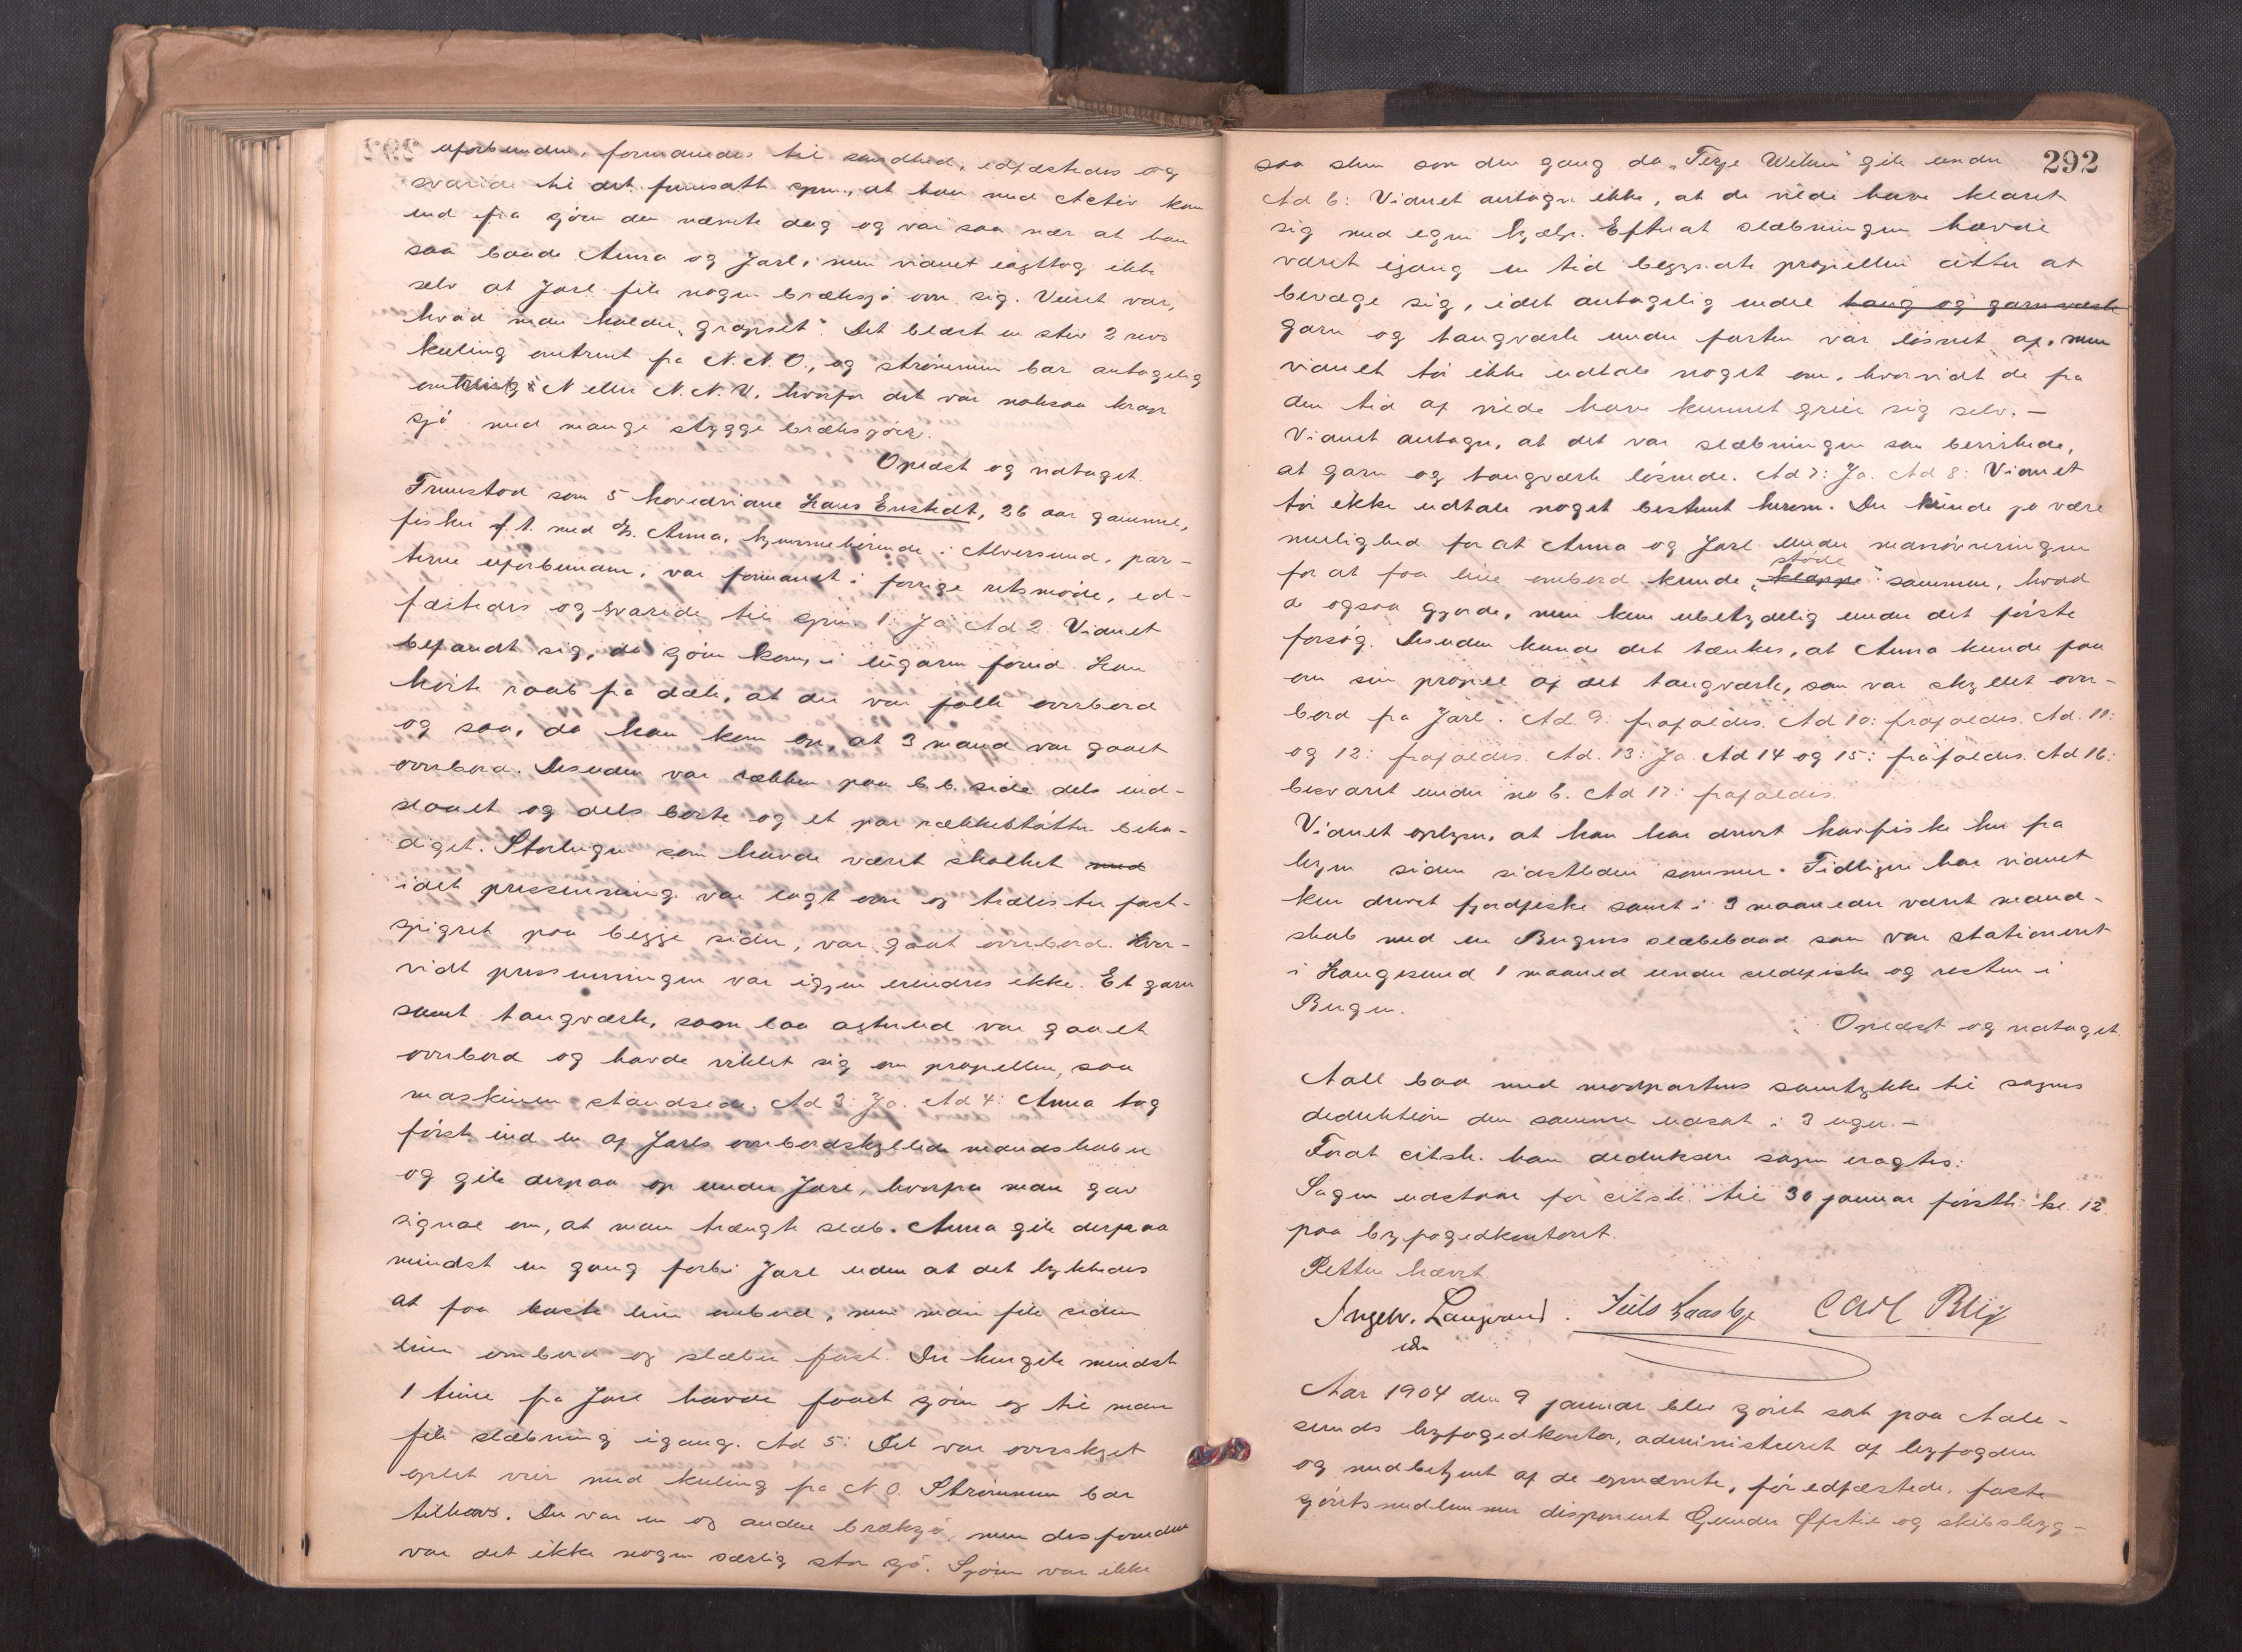 uforbunden, formanedes til sandhed, edfæstedes og
svarede til det fremsatte spm., at han med Activ kom
ind fra sjøen den næmte dag og var saa nær at han
saa baade Anna og Jarl, men vidnet iagttog ikke
selv at Jarl fik nogen bræksjø over sig. Veiret var,
hvad man kalder "grapset". Det blæst en stiv 2 revs
kuling omtrent fra N.N.O., og strømmen bar antagelig
omtrent i N eller N.N.V. hvorfor det var noksaa krap
sjø med mange stygge bræksjøer.
Oplæst og vedtaget.
Fremstod som 5 hovedvidne Hans Enstedt, 26 aar gammel,
fisker f. t. med Anna, hjemmehørende i Alversund, par-
terne uforbunden, var formanet i forrige retsmøde, ed-
fæstedes og svarede til spm. 1: Ja Ad 2: Vidnet
befandt sig, da sjøen kom, i lugaren forud. Han
hørte raab fra dæk, at der var folk overbord
og saa, da han kom op, at 3 mand var gaaet
overbord. Desuden var rækken paa b.b. side dels ind-
slaaet og dels borte og et par rækkestøtter beska-
diget. Storlugen som havde været skalket med
idet pressenning var lagt over og trælister fast-
spigret paa begge sider, var gaat overbord. Hvor-
vidt pressenningen var igjen erindres ikke. Et garn
samt taugværk, som laa agterud var gaaet
overbord og havde viklet sig om propellen, saa
maskinen standsede. Ad 3: Ja. Ad 4: Anna tog
først ind en af Jarls overbordskyllede mandskaber
og gik derpaa op under Jarl, hvorfra man gav
signal om, at man trængte slæb. Anna gik derpaa
mindst en gang forbi Jarl uden at det lykkedes
at faa kaste line ombord, men man fik siden
line ombord og slæber fast. Der hengik mindst
1 time fra Jarl havde faaet sjøen og til man
fik slæbning igang. Ad 5: Det var overskyet
oplet veir med kuling fra N.O. Strømmen bar
tilhavs. Der var en og anden bræksjø, men desforuden
var det ikke nogen særlig stor sjø. Sjøen var ikke
292
saa slem som den gang da "Terje Wiken" gik under
Ad 6: Vidnet antager ikke, at de vilde have klaret
sig med egen hjælp. Efterat slæbningen havde
været igang en tid begyndte propellen atter at
bevæge sig, idet antagelig endel taug og garn værk
garn og taugværk under farten var løsnet af, men
vidnet tør ikke udtale noget om, hvorvidt de fra
den tid af vilde have kunnet greie sig selv. —
Vidnet antager, at det var slæbningen som bevirkede,
at garn og taugværk løsnede. Ad 7: Ja. Ad 8: Vidnet
tør ikke udtale noget bestemt herom. Der kunde jo være
mulighed for at Anna og Jarl under manøvreringen
støde
for at faa line ombord kunde "kloppe" sammen, hvad
de ogsaa gjorde, men kun ubetydelig under det første
forsøg. Desuden kunde det tænkes, at Anna kunde faa
om sin propel af det taugværk, som var skyllet over-
bord fra Jarl. Ad. 9: frafaldes. Ad 10: frafaldes. Ad. 11:
og 12: frafaldes. Ad. 13: Ja. Ad 14 og 15: frafaldes. Ad 16:
besvaret under no 6. Ad 17: frafaldes.
Vidnet oplyser, at han har drevet havfiske her fra
byen siden sidstleden sommer. Tidligere har vidnet
kun drevet fjordfiske samt i 3 maaneder været mand-
skab med en Bergens slæbebaad som var stationeret
i Haugesund 1 maaned under sildefisket og resten i
Bergen.
Oplæst og vedtaget.
Aall bad med modpartens samtykke til sagens
deduktion den samme udsat i 3 uger. —
Forat citsk. kan deducere sagen eragtes:
Sagen udstaar for citsk. til 30 januar førstk. kl. 12.
paa byfogedkontoret.
Retten hævet
Ingelv. Langvand. Carl Blix
edr
Aar 1904 den 9 januar blev sjøret sat paa Aale-
sunds byfogedkontor, administreret af byfogden
og medbetjent af de opnævnte, før edfæstede, faste
sjøretsmedlemmer disponent Gunder Opstil og skibsbyg-